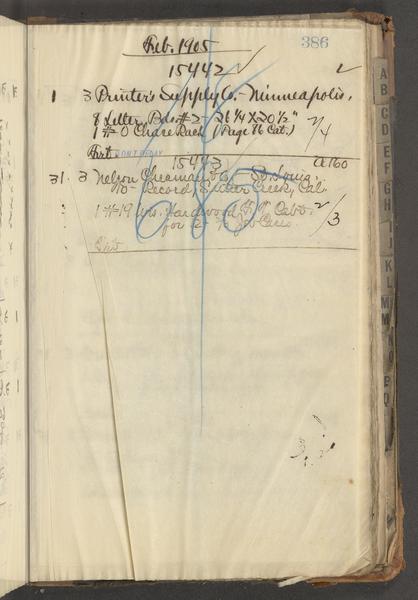 Feb. 1905
386
15442
1 3 Printer's Supply Co. - Minneapolis.
8 Letter Bds. #2 - 26 3/4 X 20 1/2"
1 #0 Chase Rack (Page 86 Cat.) 2/4
Frt.
15443 A160
31. 3 Nelson Chesman & Co. - St. Louis.
To - Record, Sutter Creek, Cal.
1 #19 Hardwood Cab. 2/3
for
A
B
C
D
E
F
G
H
J
K
L
M
M
N
O
P
Q